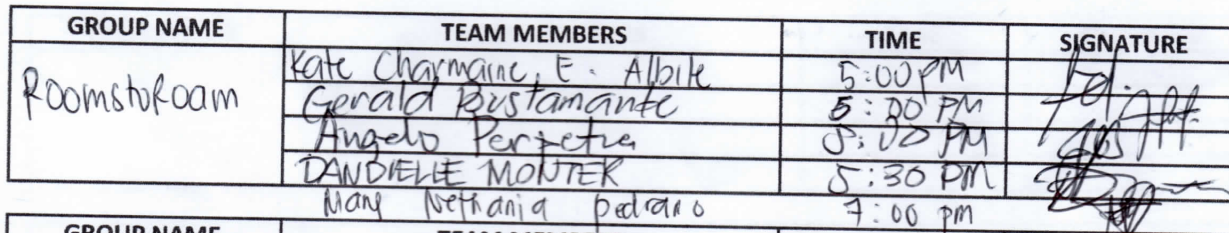 GROUP NAME TEAM MEMBERS TIME SIGNATURE
RoomstoRoam
Kate Charmaine E. Albile 5:00 PM
Gerald Bustamante 5:00 PM
Angelo Perpetua 5:00 PM
DANDIELLE MONTER 5:30 PM
Mary Nethania pedrano 7:00 pm
GROUP NAME